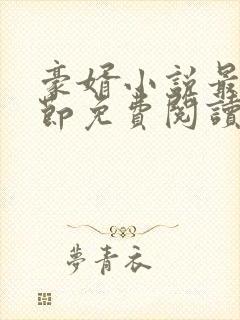 豪婿小説最
節免費閱讀
夢青衣